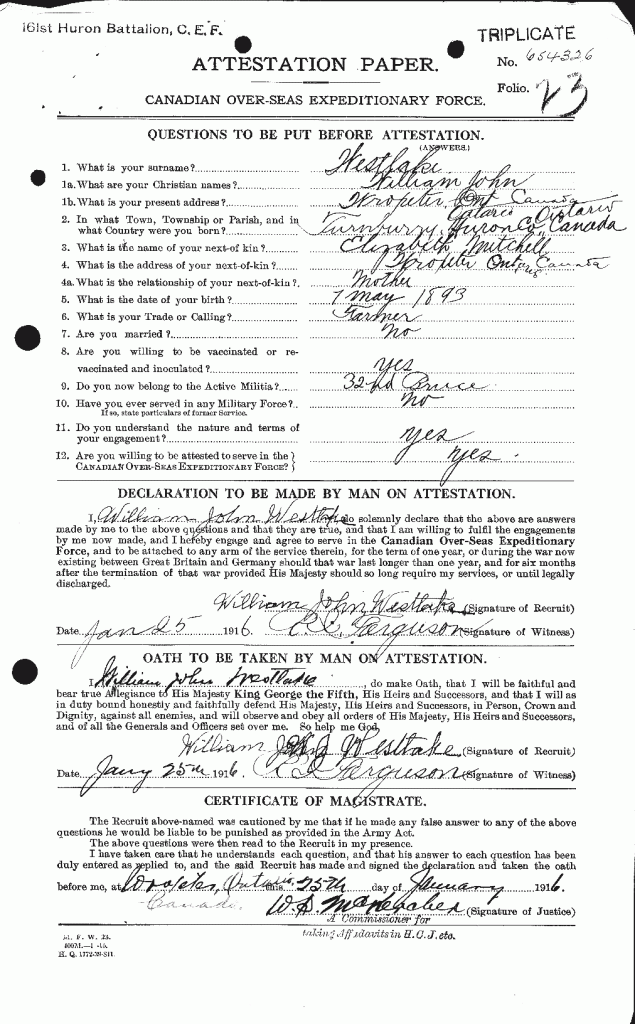 161st Huron Battalion, C. E. F.
TRIPLICATE
No. 654326
ATTESTATION PAPER.
Folio. 23
CANADIAN OVER-SEAS EXPEDITIONARY FORCE.
QUESTIONS TO BE PUT BEFORE ATTESTATION.
(ANSWERS.)
1. What is your surname? Westlake
1a. What are your Christian names? William John
1b. What is your present address? Wroxeter, Ont Canada
2. In what Town, Township or Parish, and in what Country were you born? Turnburry, Huron Co, Ontario Canada
3. What is the name of your next-of kin? Elizabeth Mitchell
4. What is the address of your next-of-kin? Wroxeter Ontario Canada
4a. What is the relationship of your next-of-kin? Mother
5. What is the date of your birth? 7 May 1893
6. What is your Trade or Calling? Farmer
7. Are you married? No
8. Are you willing to be vaccinated or re-
vaccinated and inoculated? yes
9. Do you now belong to the Active Militia? 32nd Bruce
10. Have you ever served in any Military Force? No
If so, state particulars of former Service.
11. Do you understand the nature and terms of
your engagement? yes
12. Are you willing to be attested to serve in the
CANADIAN OVER-SEAS EXPEDITIONARY FORCE? yes.
DECLARATION TO BE MADE BY MAN ON ATTESTATION.
I, William John Westlake do solemnly declare that the above are answers
made by me to the above questions and that they are true, and that I am willing to fulfil the engagements
by me now made, and I hereby engage and agree to serve in the Canadian Over-Seas Expeditionary
Force, and to be attached to any arm of the service therein, for the term of one year, or during the war now
existing between Great Britain and Germany should that war last longer than one year, and for six months
after the termination of that war provided His Majesty should so long require my services, or until legally
discharged.
William John Westlake (Signature of Recruit)
Date Jan 25 1916. C. C. Ferguson (Signature of Witness)
OATH TO BE TAKEN BY MAN ON ATTESTATION.
I, William John Westlake, do make Oath, that I will be faithful and
bear true Allegiance to His Majesty King George the Fifth, His Heirs and Successors, and that I will as
in duty bound honestly and faithfully defend His Majesty, His Heirs and Successors, in Person, Crown and
Dignity, against all enemies, and will observe and obey all orders of His Majesty, His Heirs and Successors,
and of all the Generals and Officers set over me. So help me God.
William J Westlake (Signature of Recruit)
Date Jany 25th 1916. Ferguson (Signature of Witness)
CERTIFICATE OF MAGISTRATE.
The Recruit above-named was cautioned by me that if he made any false answer to any of the above
questions he would be liable to be punished as provided in the Army Act.
The above questions were then read to the Recruit in my presence.
I have taken care that he understands each question, and that his answer to each question has been
duly entered as replied to, and the said Recruit has made and signed the declaration and taken the oath
before me, at Wroxeter, Ontario, this 25th day of January 1916.
Canada. (Signature of Justice)
A Commissioner for
taking Affidavits in H. C. J. etc.
M. F. W. 23.
H. Q. 1772-39-811.